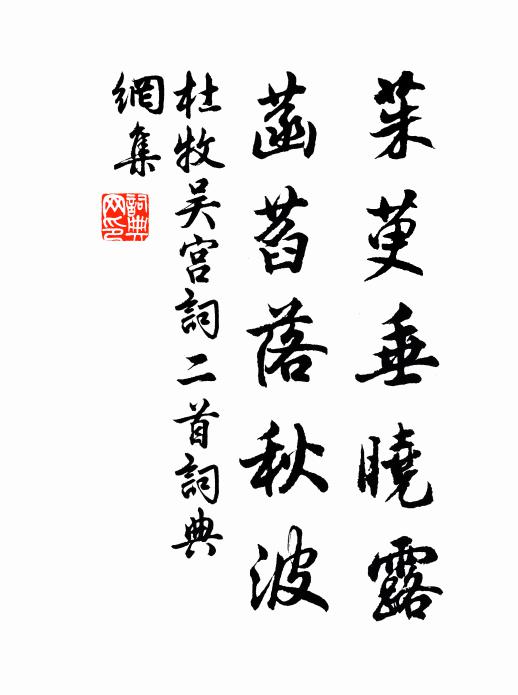 茱萸垂曉露
菡萏落秋波
杜牧吴宫詞二首詞典
網集
詞典網印